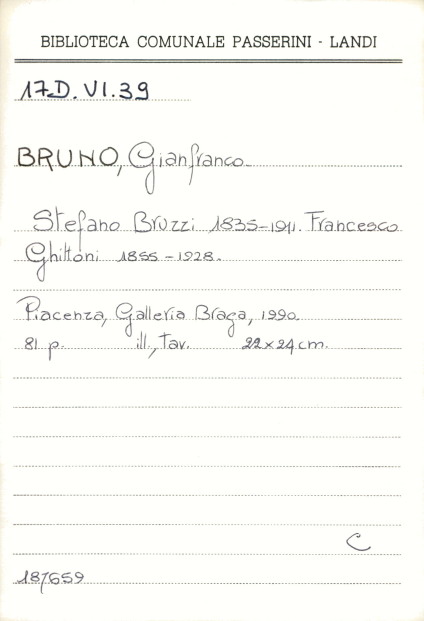 BIBLIOTECA COMUNALE PASSERINI - LANDI
17.D.VI.39
BRUNO, Gianfranco
Stefano Bruzzi 1835-1911. Francesco
Ghittoni 1855-1928.
Piacenza, Galleria Braga, 1990.
81 p. ill., tav. 22x24 cm.
C
187659